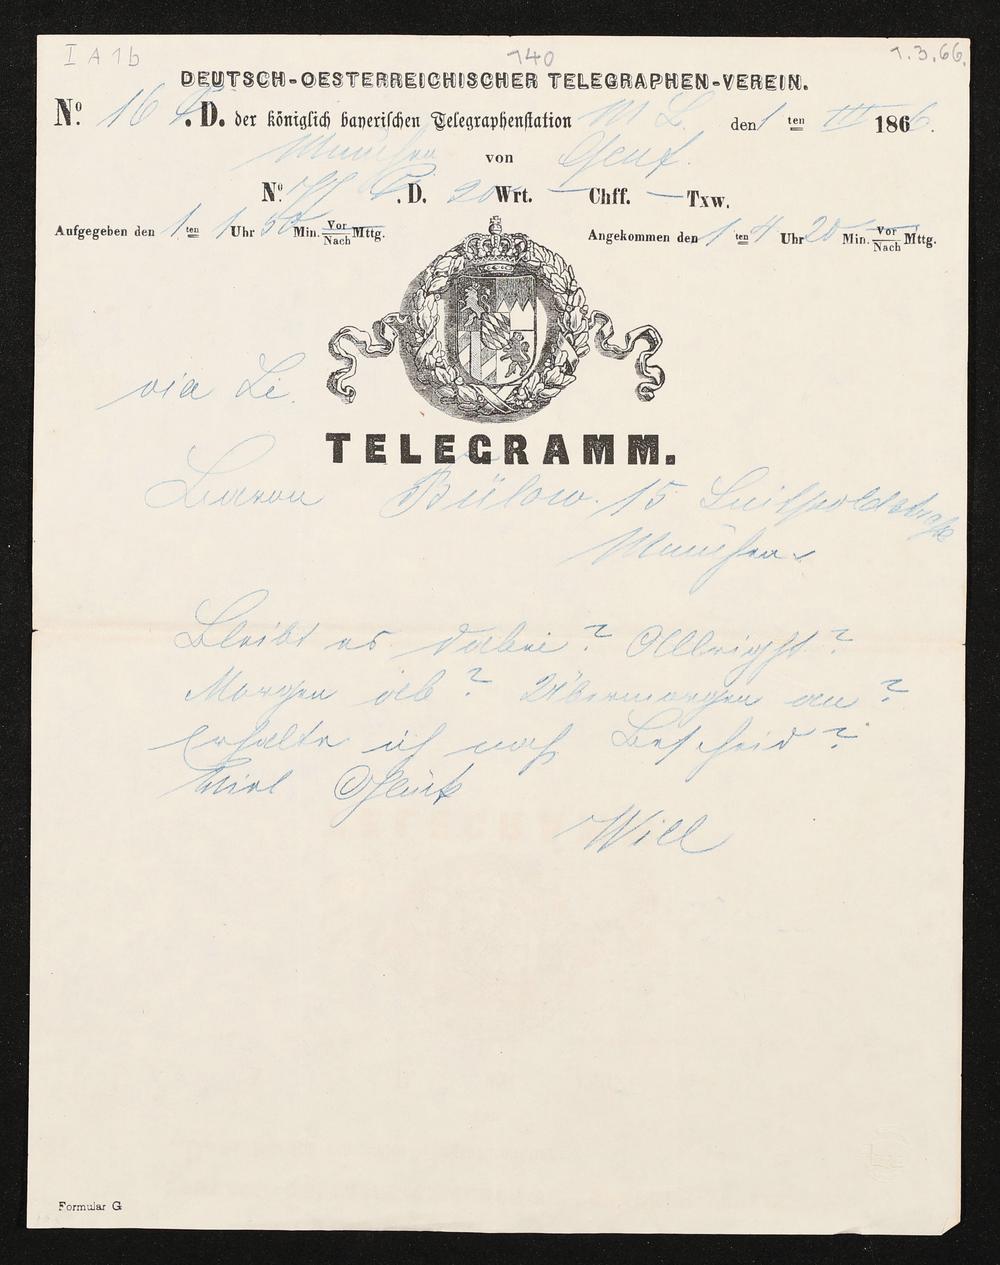 I A 1b 140 1.3.66.
DEUTSCH-OESTERREICHISCHER TELEGRAPHEN-VEREIN.
No. 16 . D. der königlich bayerischen Telegraphenstation M L. den 1 ten III 1866.
München von Genf.
No. . D. 20 Wrt. — Chff. — Txw.
Aufgegeben den 1 ten 1 Uhr 50 Min. Vor/Nach Mttg. Angekommen den 1 ten 4 Uhr 20 Min. Vor/Nach Mttg.
via Li.
TELEGRAMM.
Baron Bülow. 15 Luitpoldstraße
München
Bleibt es dabei? Allright?
Morgen ab? Übermorgen an?
Erhalte ich noch Bescheid?
Viel Glück
Will
Formular G